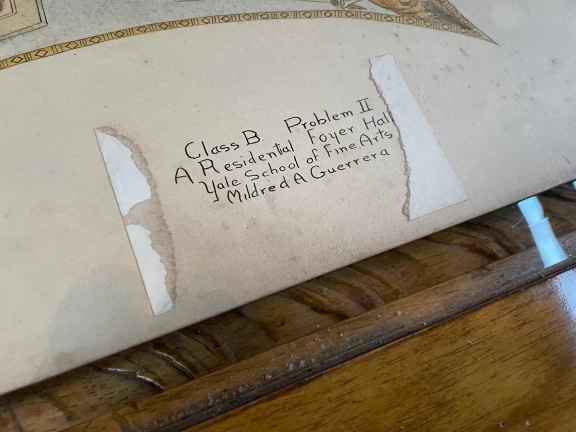 Class B Problem II
A Residential Foyer Hall
Yale School of Fine Arts
Mildred A Guerrera